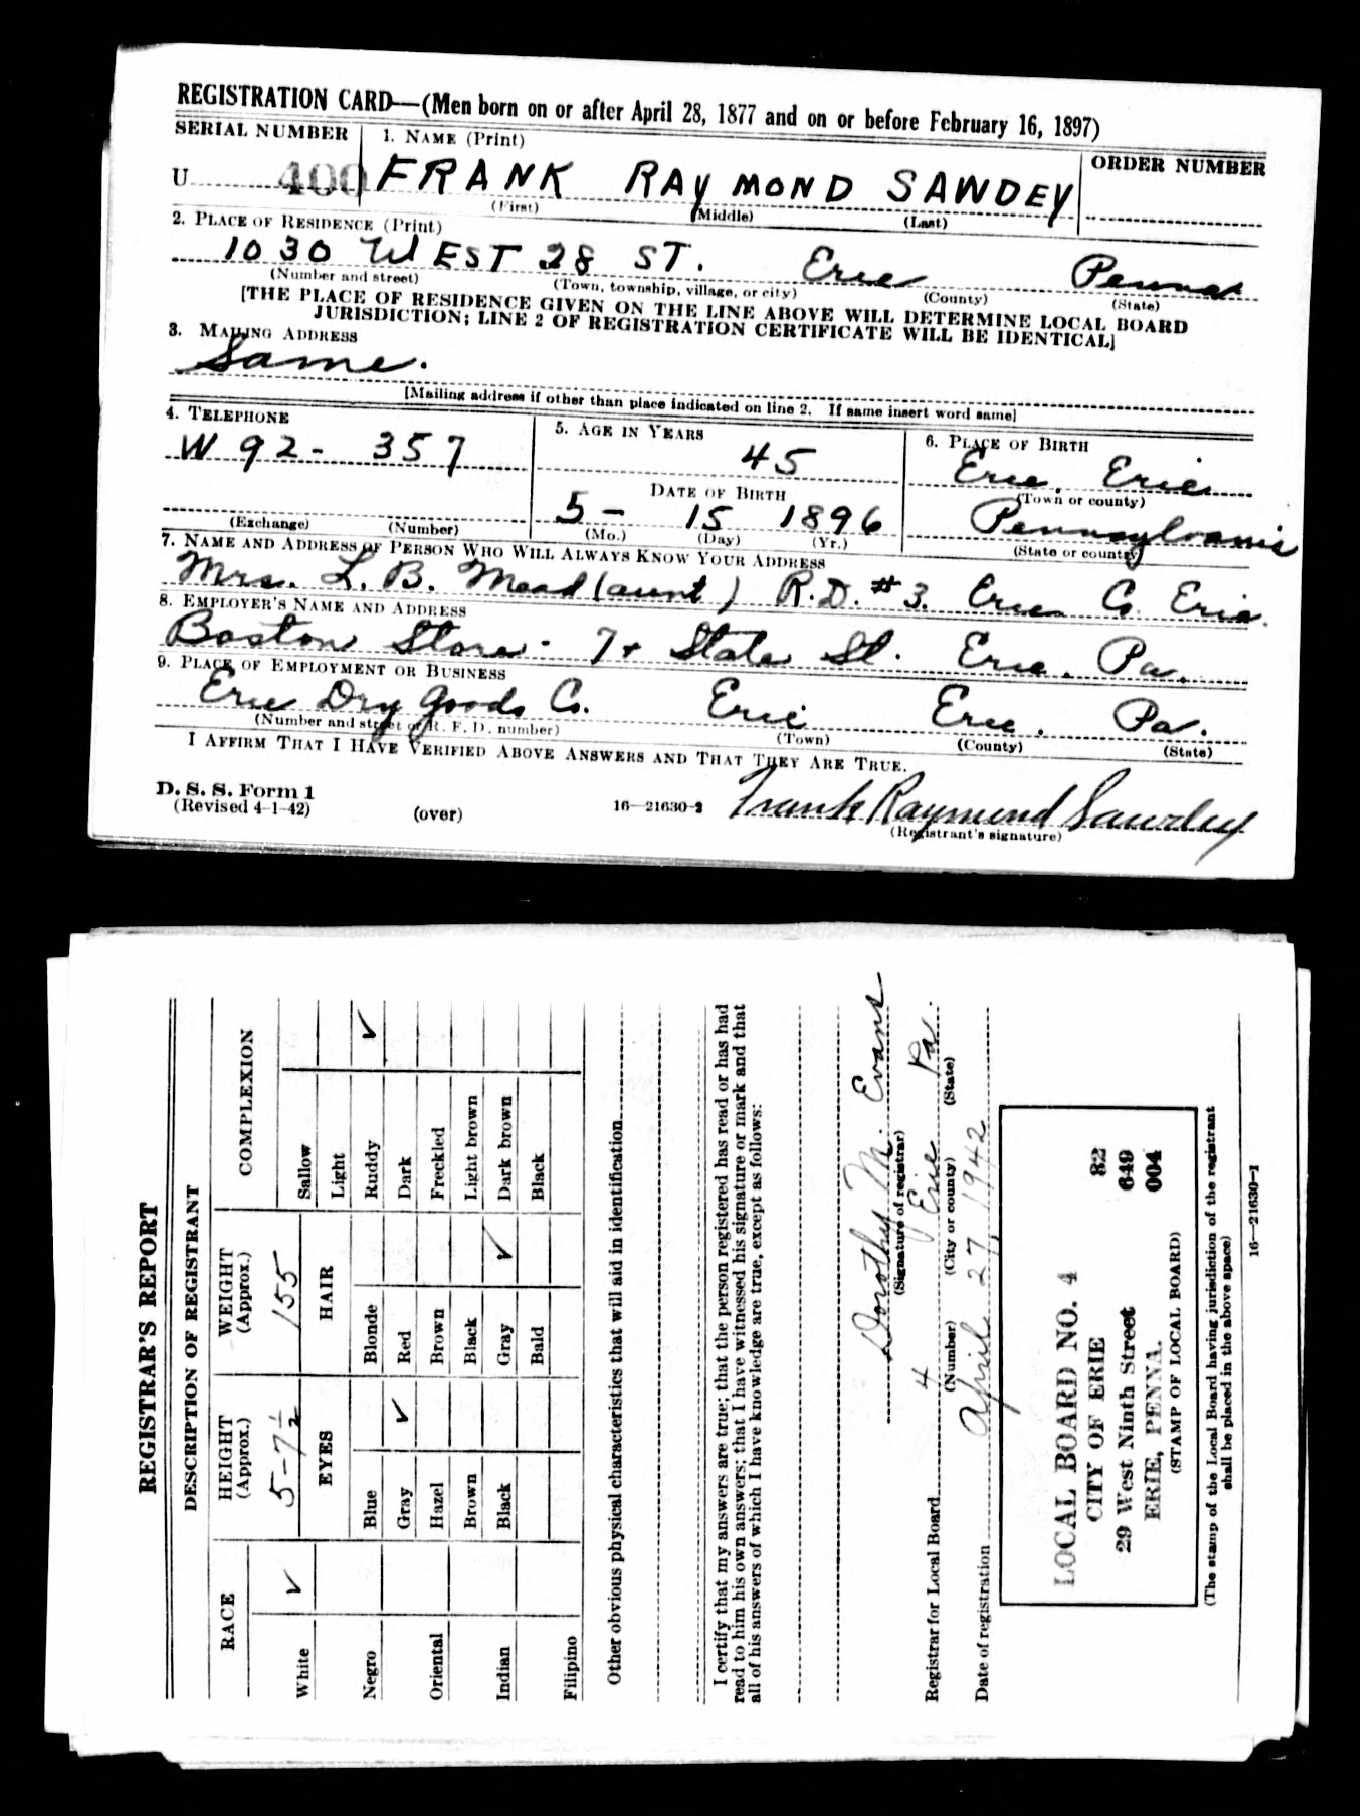 REGISTRATION CARD—(Men born on or after April 28, 1877 and on or before February 16, 1897)
SERIAL NUMBER 1. NAME (Print) ORDER NUMBER
U 400 FRANK RAYMOND SAWDEY
(First) (Middle) (Last)
2. PLACE OF RESIDENCE (Print)
1030 WEST 28 ST. Erie Penna
(Number and street) (Town, township, village, or city) (County) (State)
[THE PLACE OF RESIDENCE GIVEN ON THE LINE ABOVE WILL DETERMINE LOCAL BOARD
JURISDICTION; LINE 2 OF REGISTRATION CERTIFICATE WILL BE IDENTICAL]
3. MAILING ADDRESS
Same.
[Mailing address if other than place indicated on line 2. If same insert word same]
4. TELEPHONE 5. AGE IN YEARS 6. PLACE OF BIRTH
W 92-357 45 Erie, Erie
(Town or county)
DATE OF BIRTH
5- 15 1896 Pennsylvania
(Exchange) (Number) (Mo.) (Day) (Yr.) (State or country)
7. NAME AND ADDRESS OF PERSON WHO WILL ALWAYS KNOW YOUR ADDRESS
Mrs. L. B. Mead (aunt) R.D. #3. Erie Co. Erie.
8. EMPLOYER'S NAME AND ADDRESS
Boston Store - 7+ State St. Erie. Pa.
9. PLACE OF EMPLOYMENT OR BUSINESS
Erie Dry Goods Co. Erie Erie. Pa.
(Number and street or R. F. D. number) (Town) (County) (State)
I AFFIRM THAT I HAVE VERIFIED ABOVE ANSWERS AND THAT THEY ARE TRUE.
D. S. S. Form 1
(Revised 4-1-42) (over) 16—21630-2 Frank Raymond Sawdey
(Registrant's signature)
REGISTRAR'S REPORT
DESCRIPTION OF REGISTRANT
RACE HEIGHT (Approx.) WEIGHT (Approx.) COMPLEXION
White ✓ 5-7½ 155 Sallow
EYES HAIR Light
Negro Blue Blonde Ruddy ✓
Gray ✓ Red Dark
Oriental Hazel Brown Freckled
Brown Black Light brown
Indian Black Gray ✓ Dark brown
Bald Black
Filipino
Other obvious physical characteristics that will aid in identification
I certify that my answers are true; that the person registered has read or has had
read to him his own answers; that I have witnessed his signature or mark and that
all of his answers of which I have knowledge are true, except as follows:
Dorothy M. Evans
(Signature of registrar)
Registrar for Local Board 4 Erie Pa.
(Number) (City or county) (State)
Date of registration April 27, 1942
LOCAL BOARD NO. 4 82
CITY OF ERIE 649
29 West Ninth Street 004
ERIE, PENNA.
(STAMP OF LOCAL BOARD)
(The stamp of the Local Board having jurisdiction of the registrant
shall be placed in the above space)
16—21630-1